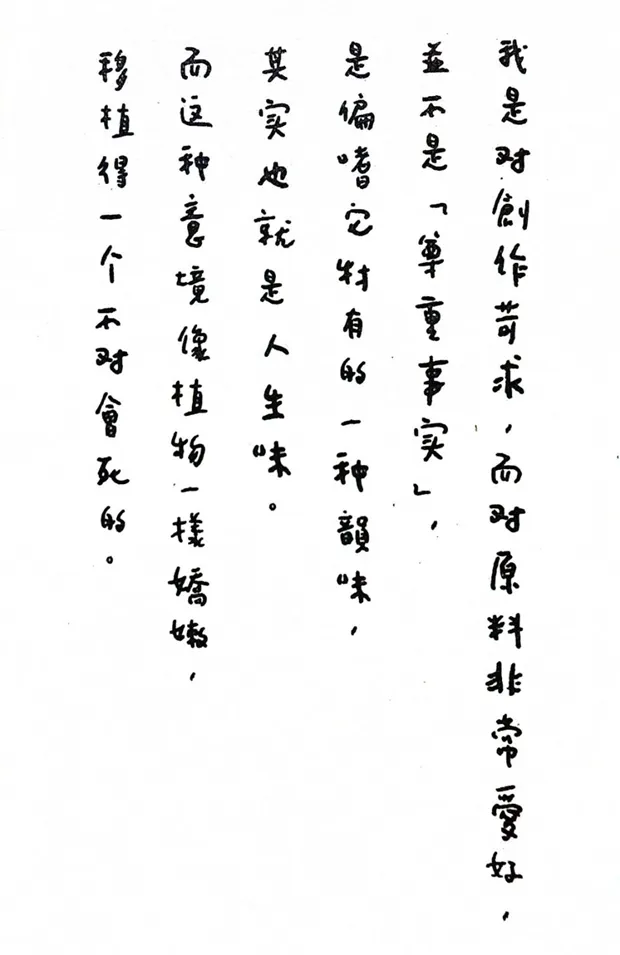 我是对創作苛求，而对原料非常愛好，
並不是「尊重事实」，
是偏嗜它特有的一种韻味，
其实也就是人生味。
而这种意境像植物一樣嬌嫩，
移植得一个不对會死的。